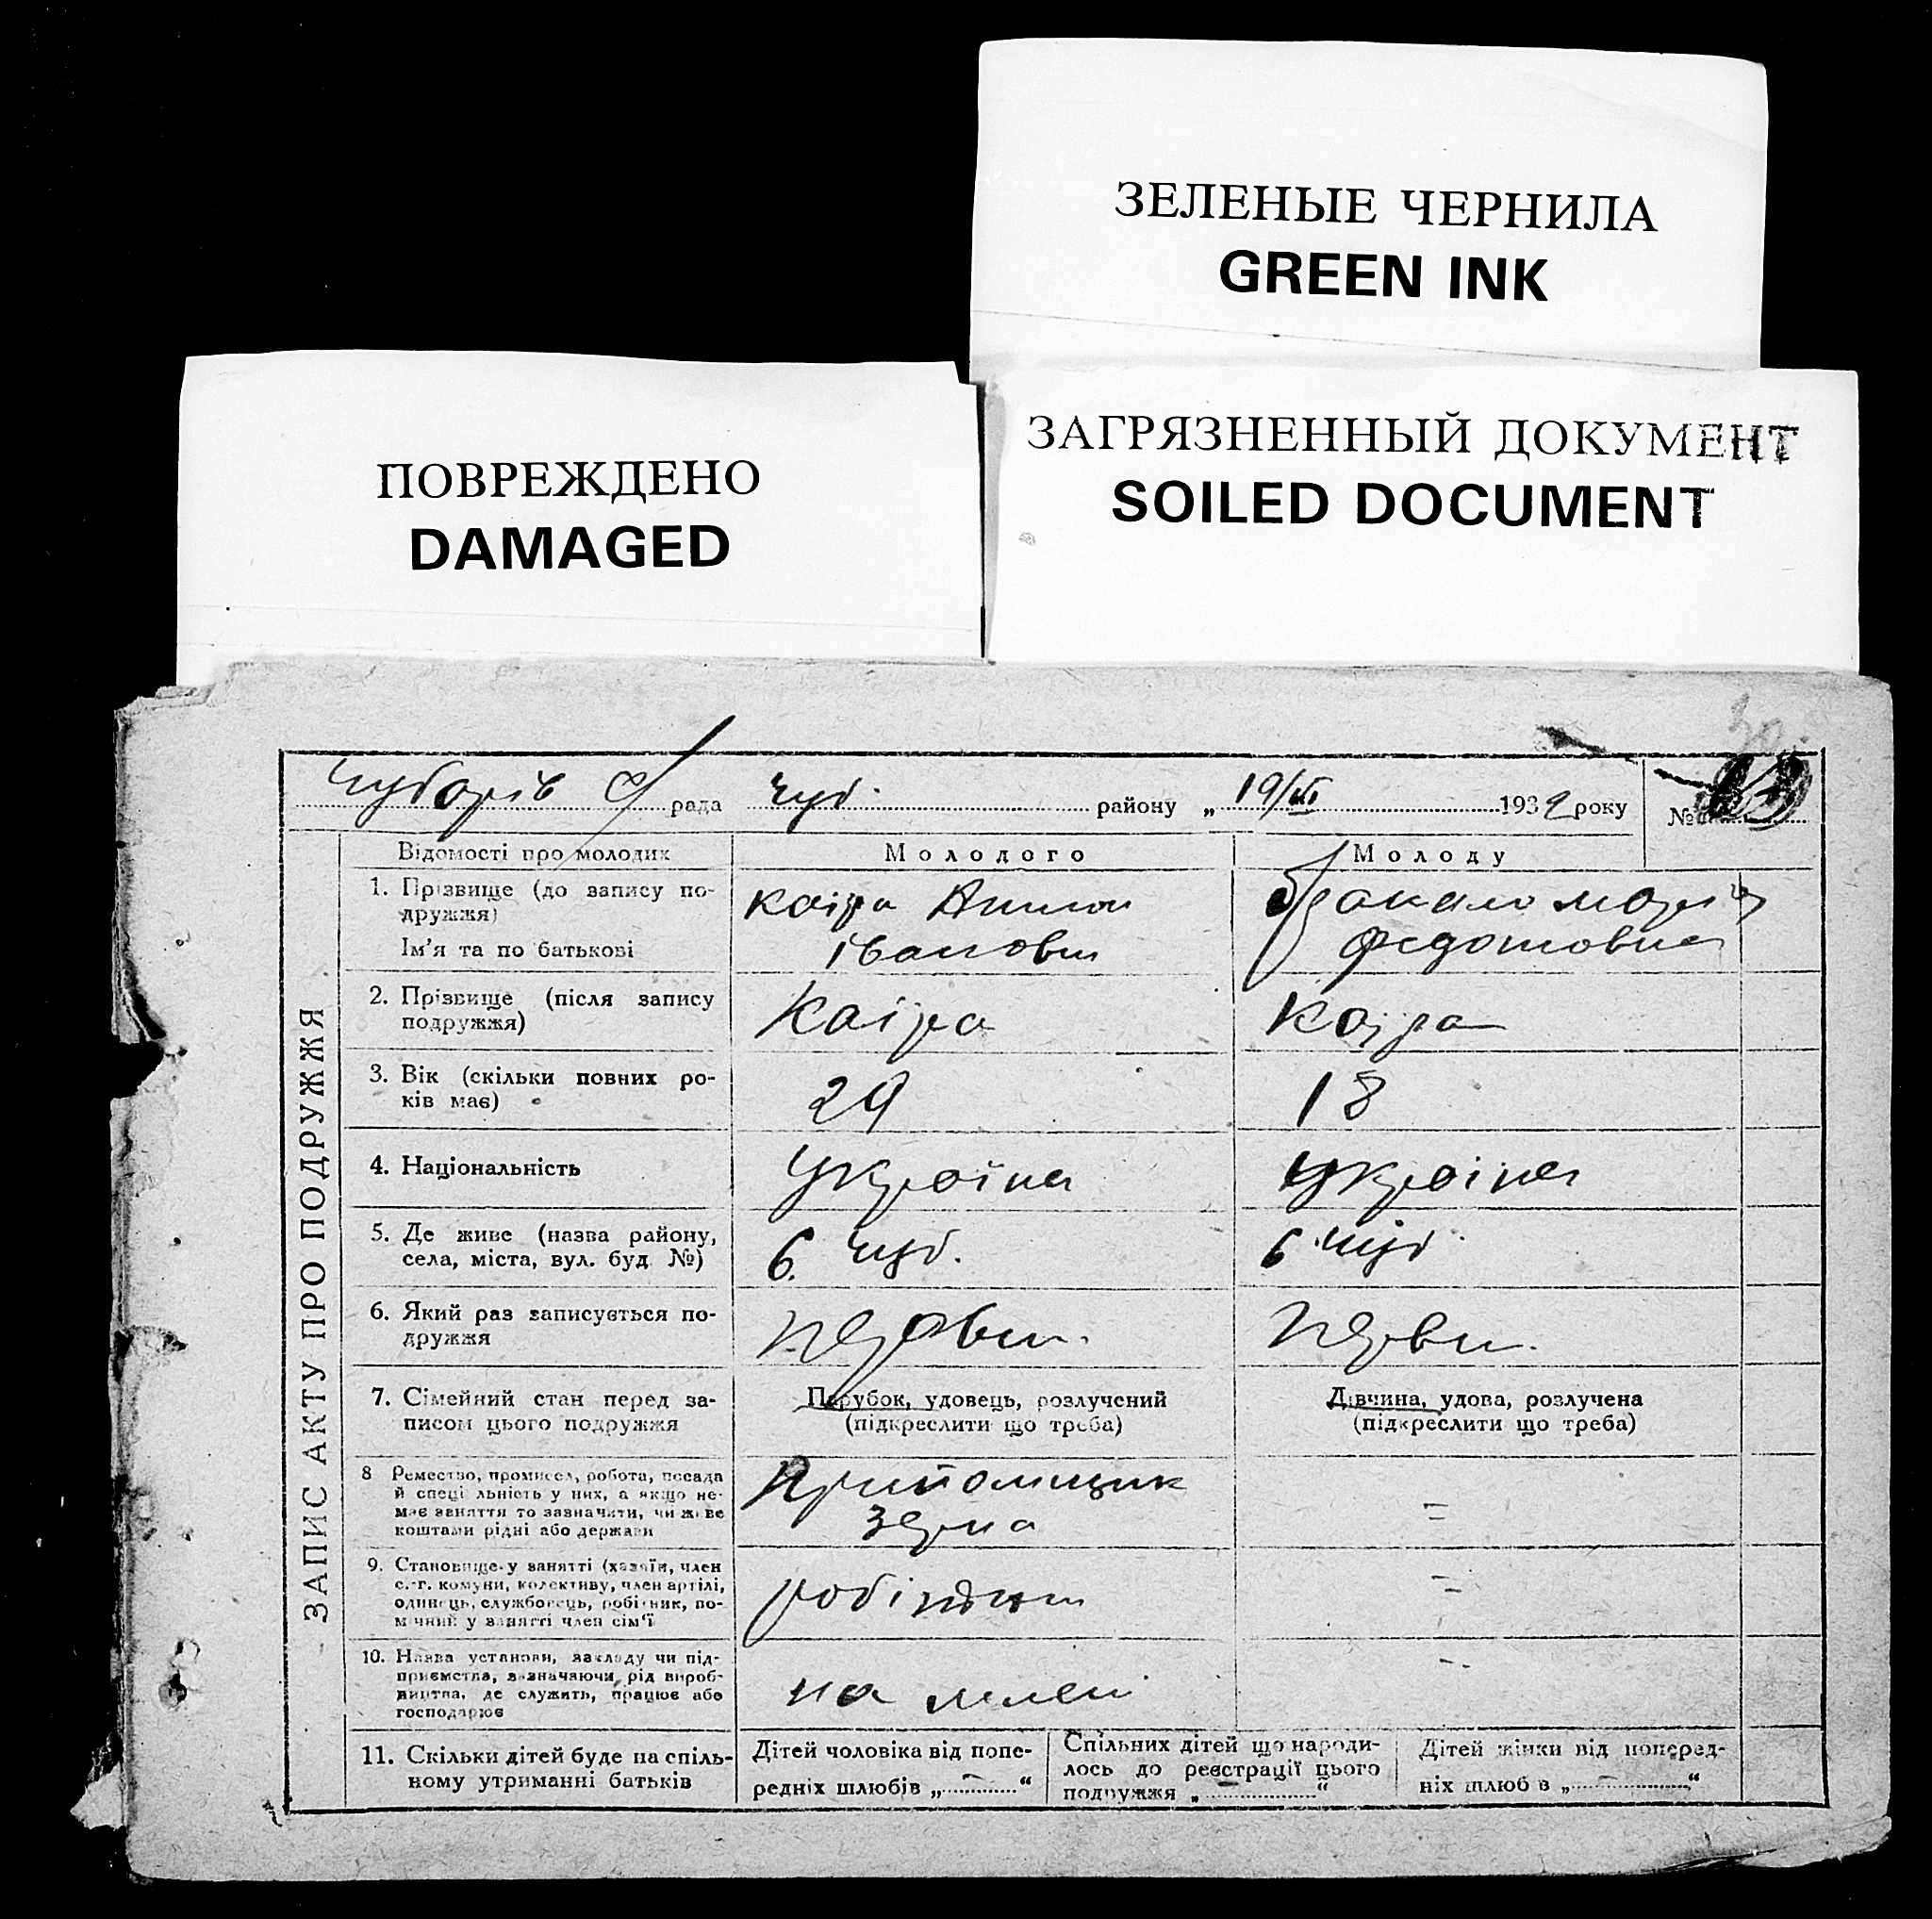 ЗЕЛЕНЫЕ ЧЕРНИЛА
GREEN INK
ПОВРЕЖДЕНО
DAMAGED
ЗАГРЯЗНЕННЫЙ ДОКУМЕНТ
SOILED DOCUMENT
ЗАПИС АКТУ ПРО ПОДРУЖЖЯ
Чубарів с/рада Чуб. району „ 19/III 1932 року №
Відомості про молодих
Молодого
Молоду
1. Прізвище (до запису по-
дружжя)
Ім'я та по батькові
Каїра
Іванови
Марія
Федотовна
2. Прізвище (після запису
подружжя)
Каїра
Каїра
3. Вік (скільки повних ро-
ків має)
29
18
4. Національність
Україна
Україна
5. Де живе (назва району,
села, міста, вул. буд №)
Чуб.
Чуб.
6. Який раз записується по-
дружжя
Перви.
Перви.
7. Сімейний стан перед за-
писом цього подружжя
Парубок, удовець, розлучений
(підкреслити що треба)
Дівчина, удова, розлучена
(підкреслити що треба)
8 Ремество, промисел, робота, посада
й спеціяльність у них, а якщо не-
має заняття то зазначити, чи живе
коштами рідні або держави
Прийомщик
зерна
=
9. Становище у занятті (хазяїн, член
с.-г. комуни, колективу, член артілі,
одинець, службовець, робітник, по-
мічний у занятті член сім'ї
=
10. Назва установи, закладу чи під-
приємства, зазначаючи рід вироб-
ництва, де служить, працює або
господарює
на
11. Скільки дітей буде на спіль-
ному утриманні батьків
Дітей чоловіка від попе-
редніх шлюбів „ — “
Спільних дітей що народи-
лось до реєстрації цього
подружжя „ — “
Дітей жінки від поперед-
ніх шлюбів „ — “